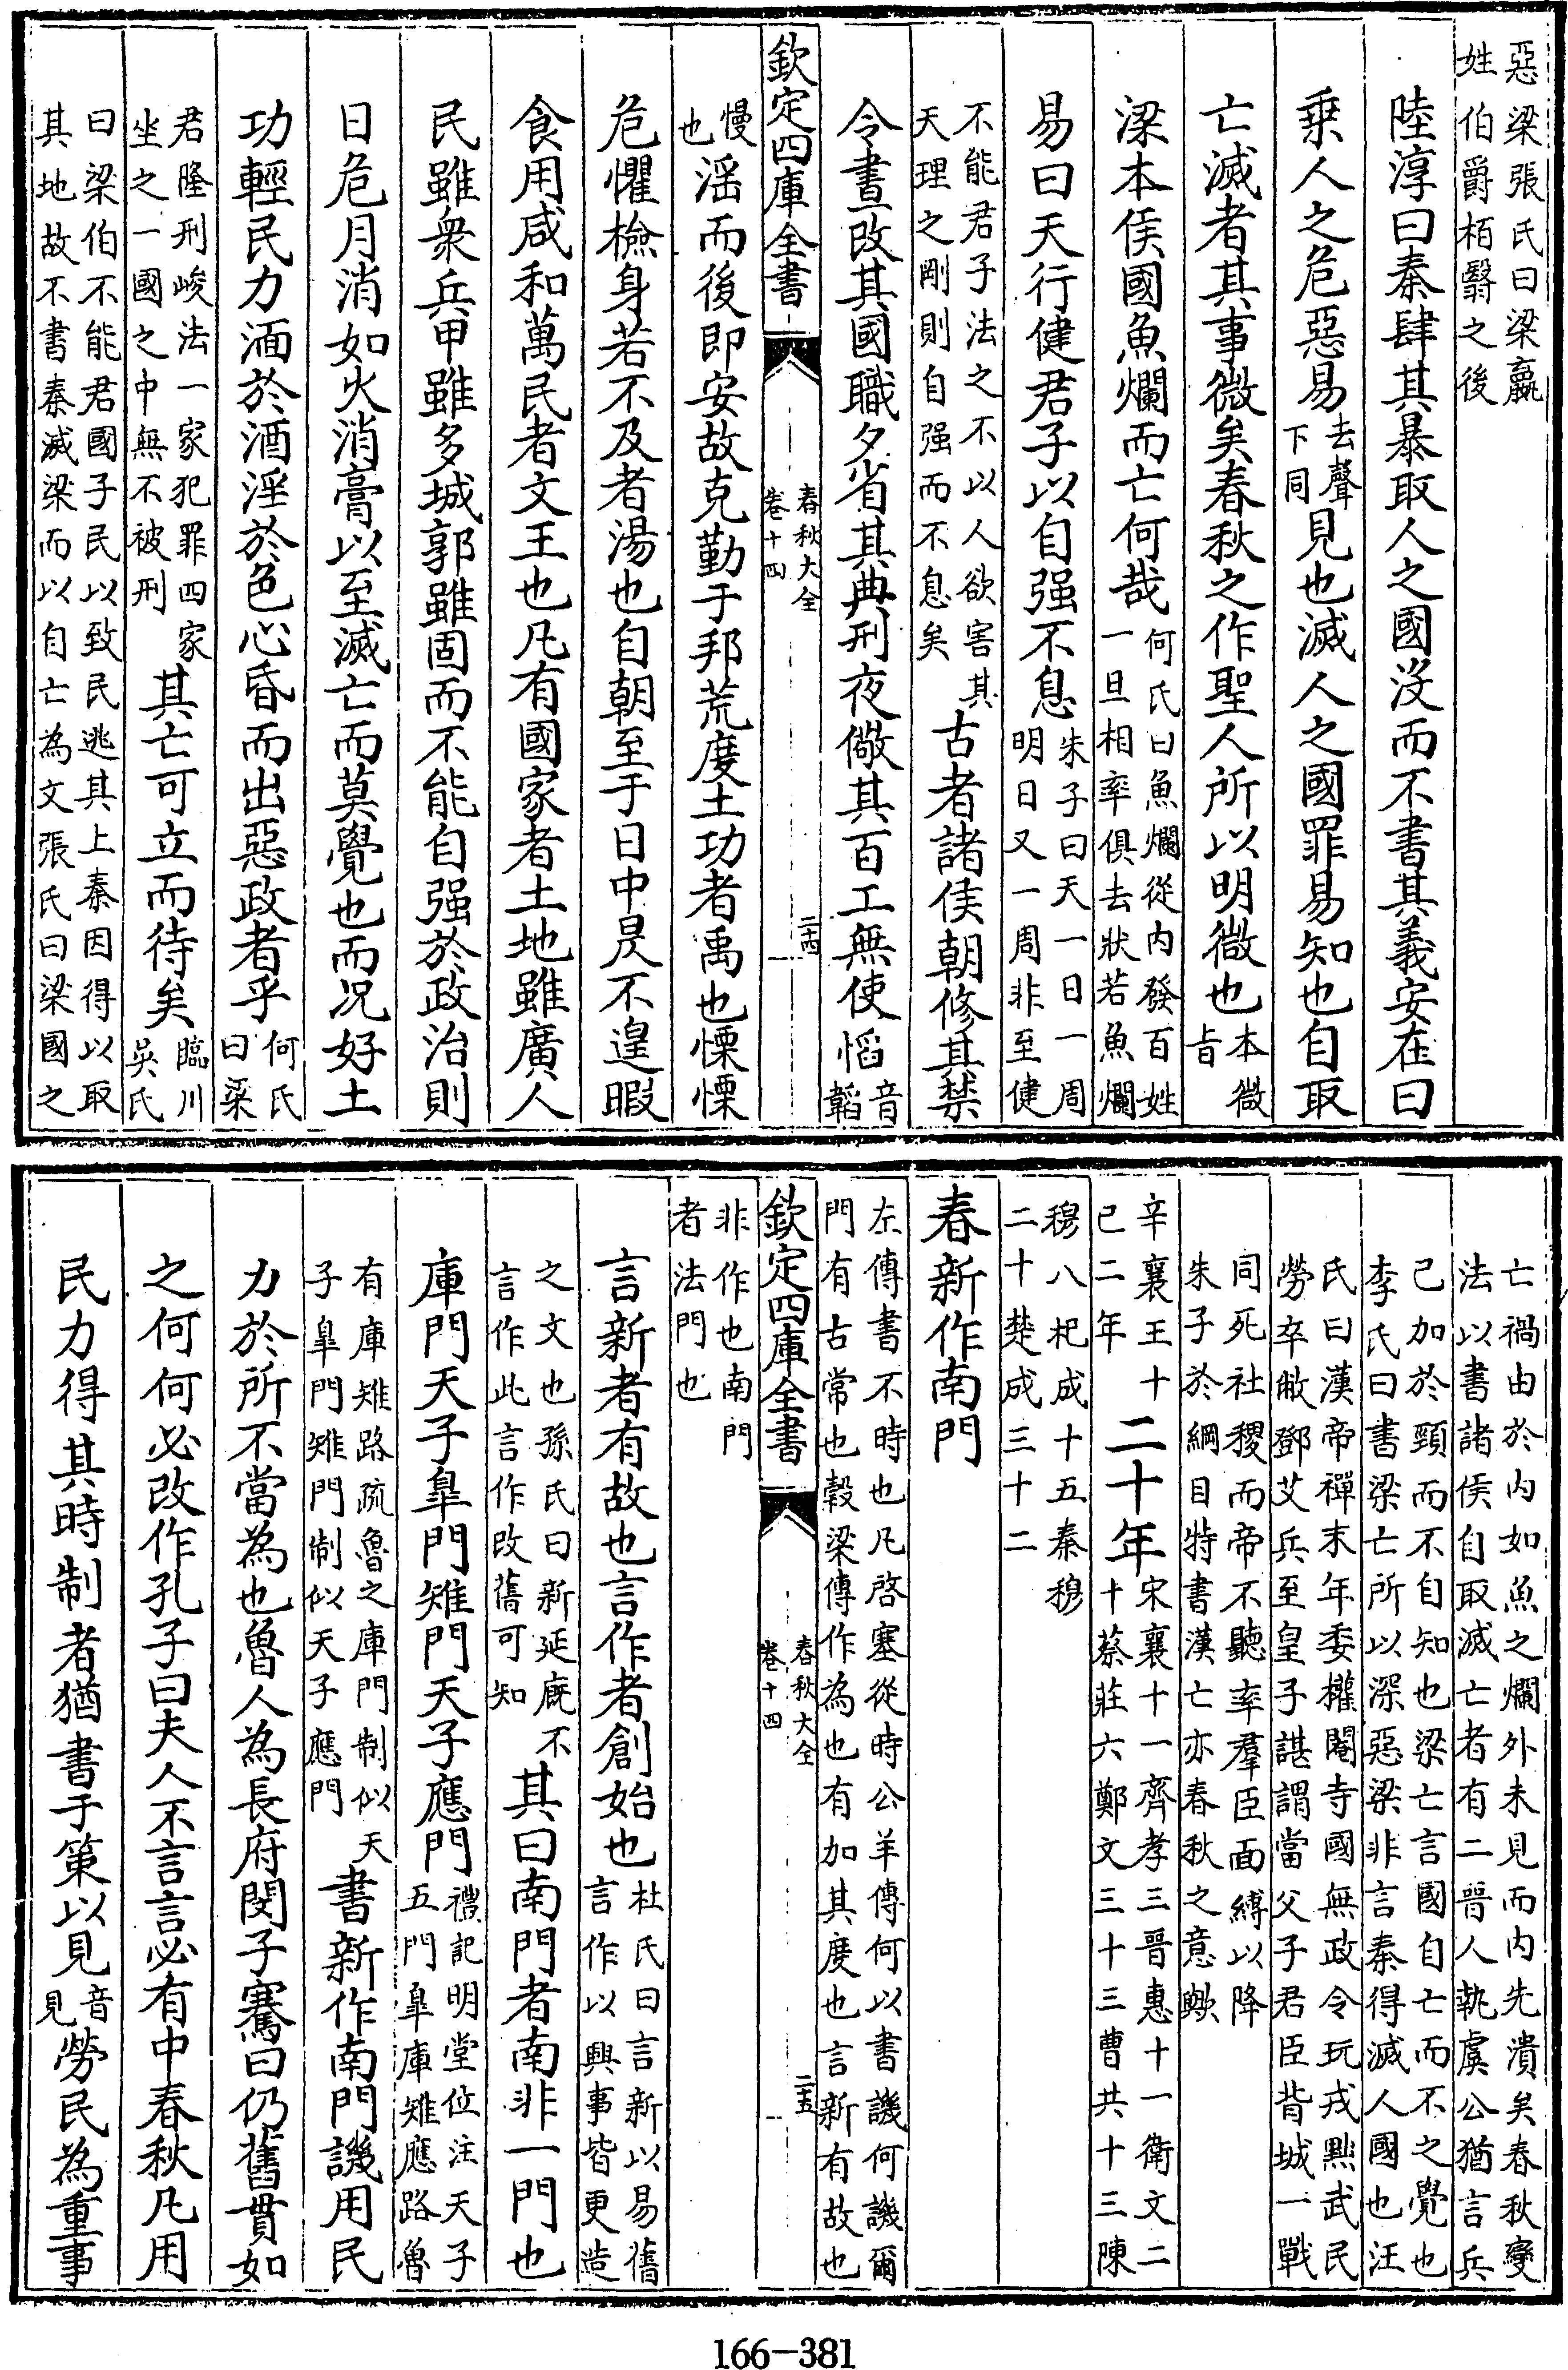 惡梁張氏曰梁嬴
姓伯爵栢翳之後
陸淳曰秦肆其暴取人之國没而不書其義安在曰
乗人之危惡易去聲下同見也滅人之國罪易知也自取
亡滅者其事微矣春秋之作聖人所以明微也本微旨
梁本侯國魚爛而亡何哉何氏曰魚爛從内發百姓一旦相率俱去狀若魚爛
易曰天行健君子以自强不息朱子曰天一日一周明日又一周非至健
不能君子法之不以人欲害其天理之剛則自强而不息矣古者諸侯朝修其禁
令晝改其國職夕省其典刑夜儆其百工無使慆音韜
欽定四庫全書
春秋大全
卷十四
二十四
慢也滛而後即安故克勤于邦荒度土功者禹也慄慄
危懼檢身若不及者湯也自朝至于日中昃不遑暇
食用咸和萬民者文王也凡有國家者土地雖廣人
民雖衆兵甲雖多城郭雖固而不能自强於政治則
日危月消如火消膏以至滅亡而莫覺也而況好土
功輕民力湎於酒淫於色心昏而出惡政者乎何氏曰梁
君隆刑峻法一家犯罪四家坐之一國之中無不被刑其亡可立而待矣臨川吳氏
曰梁伯不能君國子民以致民逃其上秦因得以取
其地故不書秦滅梁而以自亡為文張氏曰梁國之
亡禍由於内如魚之爛外未見而内先潰矣春秋變
法以書諸侯自取滅亡者有二晋人執虞公猶言兵
已加於頸而不自知也梁亡言國自亡而不之覺也
李氏曰書梁亡所以深惡梁非言秦得滅人國也汪
氏曰漢帝禪末年委權閹寺國無政令玩戎黷武民
勞卒敝鄧艾兵至皇子諶謂當父子君臣背城一戰
同死社稷而帝不聽率羣臣面縛以降
朱子於綱目特書漢亡亦春秋之意歟
辛襄王十
巳二年
二十年宋襄十一齊孝三晋惠十一衛文二十蔡莊六鄭文三十三曹共十三陳
穆八杞成十五秦穆
二十楚成三十二
春新作南門
左傳書不時也凡啓塞從時公羊傳何以書譏何譏爾
門有古常也穀梁傳作為也有加其度也言新有故也
欽定四庫全書
春秋大全
卷十四
二十五
非作也南門
者法門也
言新者有故也言作者創始也杜氏曰言新以易舊言作以興事皆更造
之文也孫氏曰新延廐不言作此言作改舊可知其曰南門者南非一門也
庫門天子臯門雉門天子應門禮記明堂位注天子五門臯庫雉應路魯
有庫雉路疏魯之庫門制似天子臯門雉門制似天子應門書新作南門譏用民
力於所不當為也魯人為長府閔子騫曰仍舊貫如
之何何必改作孔子曰夫人不言言必有中春秋凡用
民力得其時制者猶書于策以見音見勞民為重事
166-381